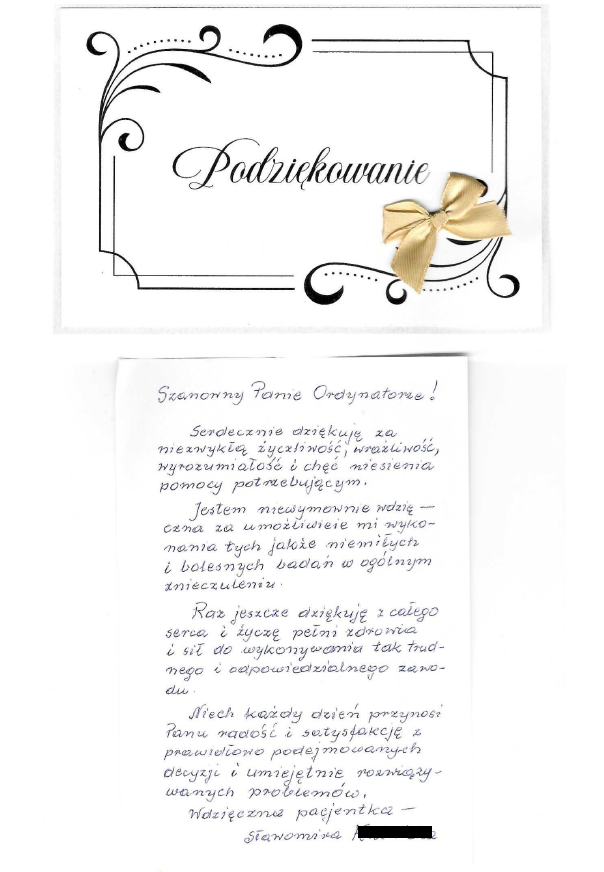 Podziękowanie
Szanowny Panie Ordynatorze!
Serdecznie dziękuję za
niezwykłą życzliwość, wrażliwość,
wyrozumiałość i chęć niesienia
pomocy potrzebującym.
Jestem niewymownie wdzię-
czna za umożliwieie mi wyko-
nania tych jakże niemiłych
i bolesnych badań w ogólnym
znieczuleniu.
Raz jeszcze dziękuję z całego
serca i życzę pełni zdrowia
i sił do wykonywania tak trud-
nego i odpowiedzialnego zawo-
du.
Niech każdy dzień przynosi
Panu radość i satysfakcję z
prawidłowo podejmowanych
decyzji i umiejętnie rozwiązy-
wanych problemów.
Wdzięczna pacjentka -
Sławomira